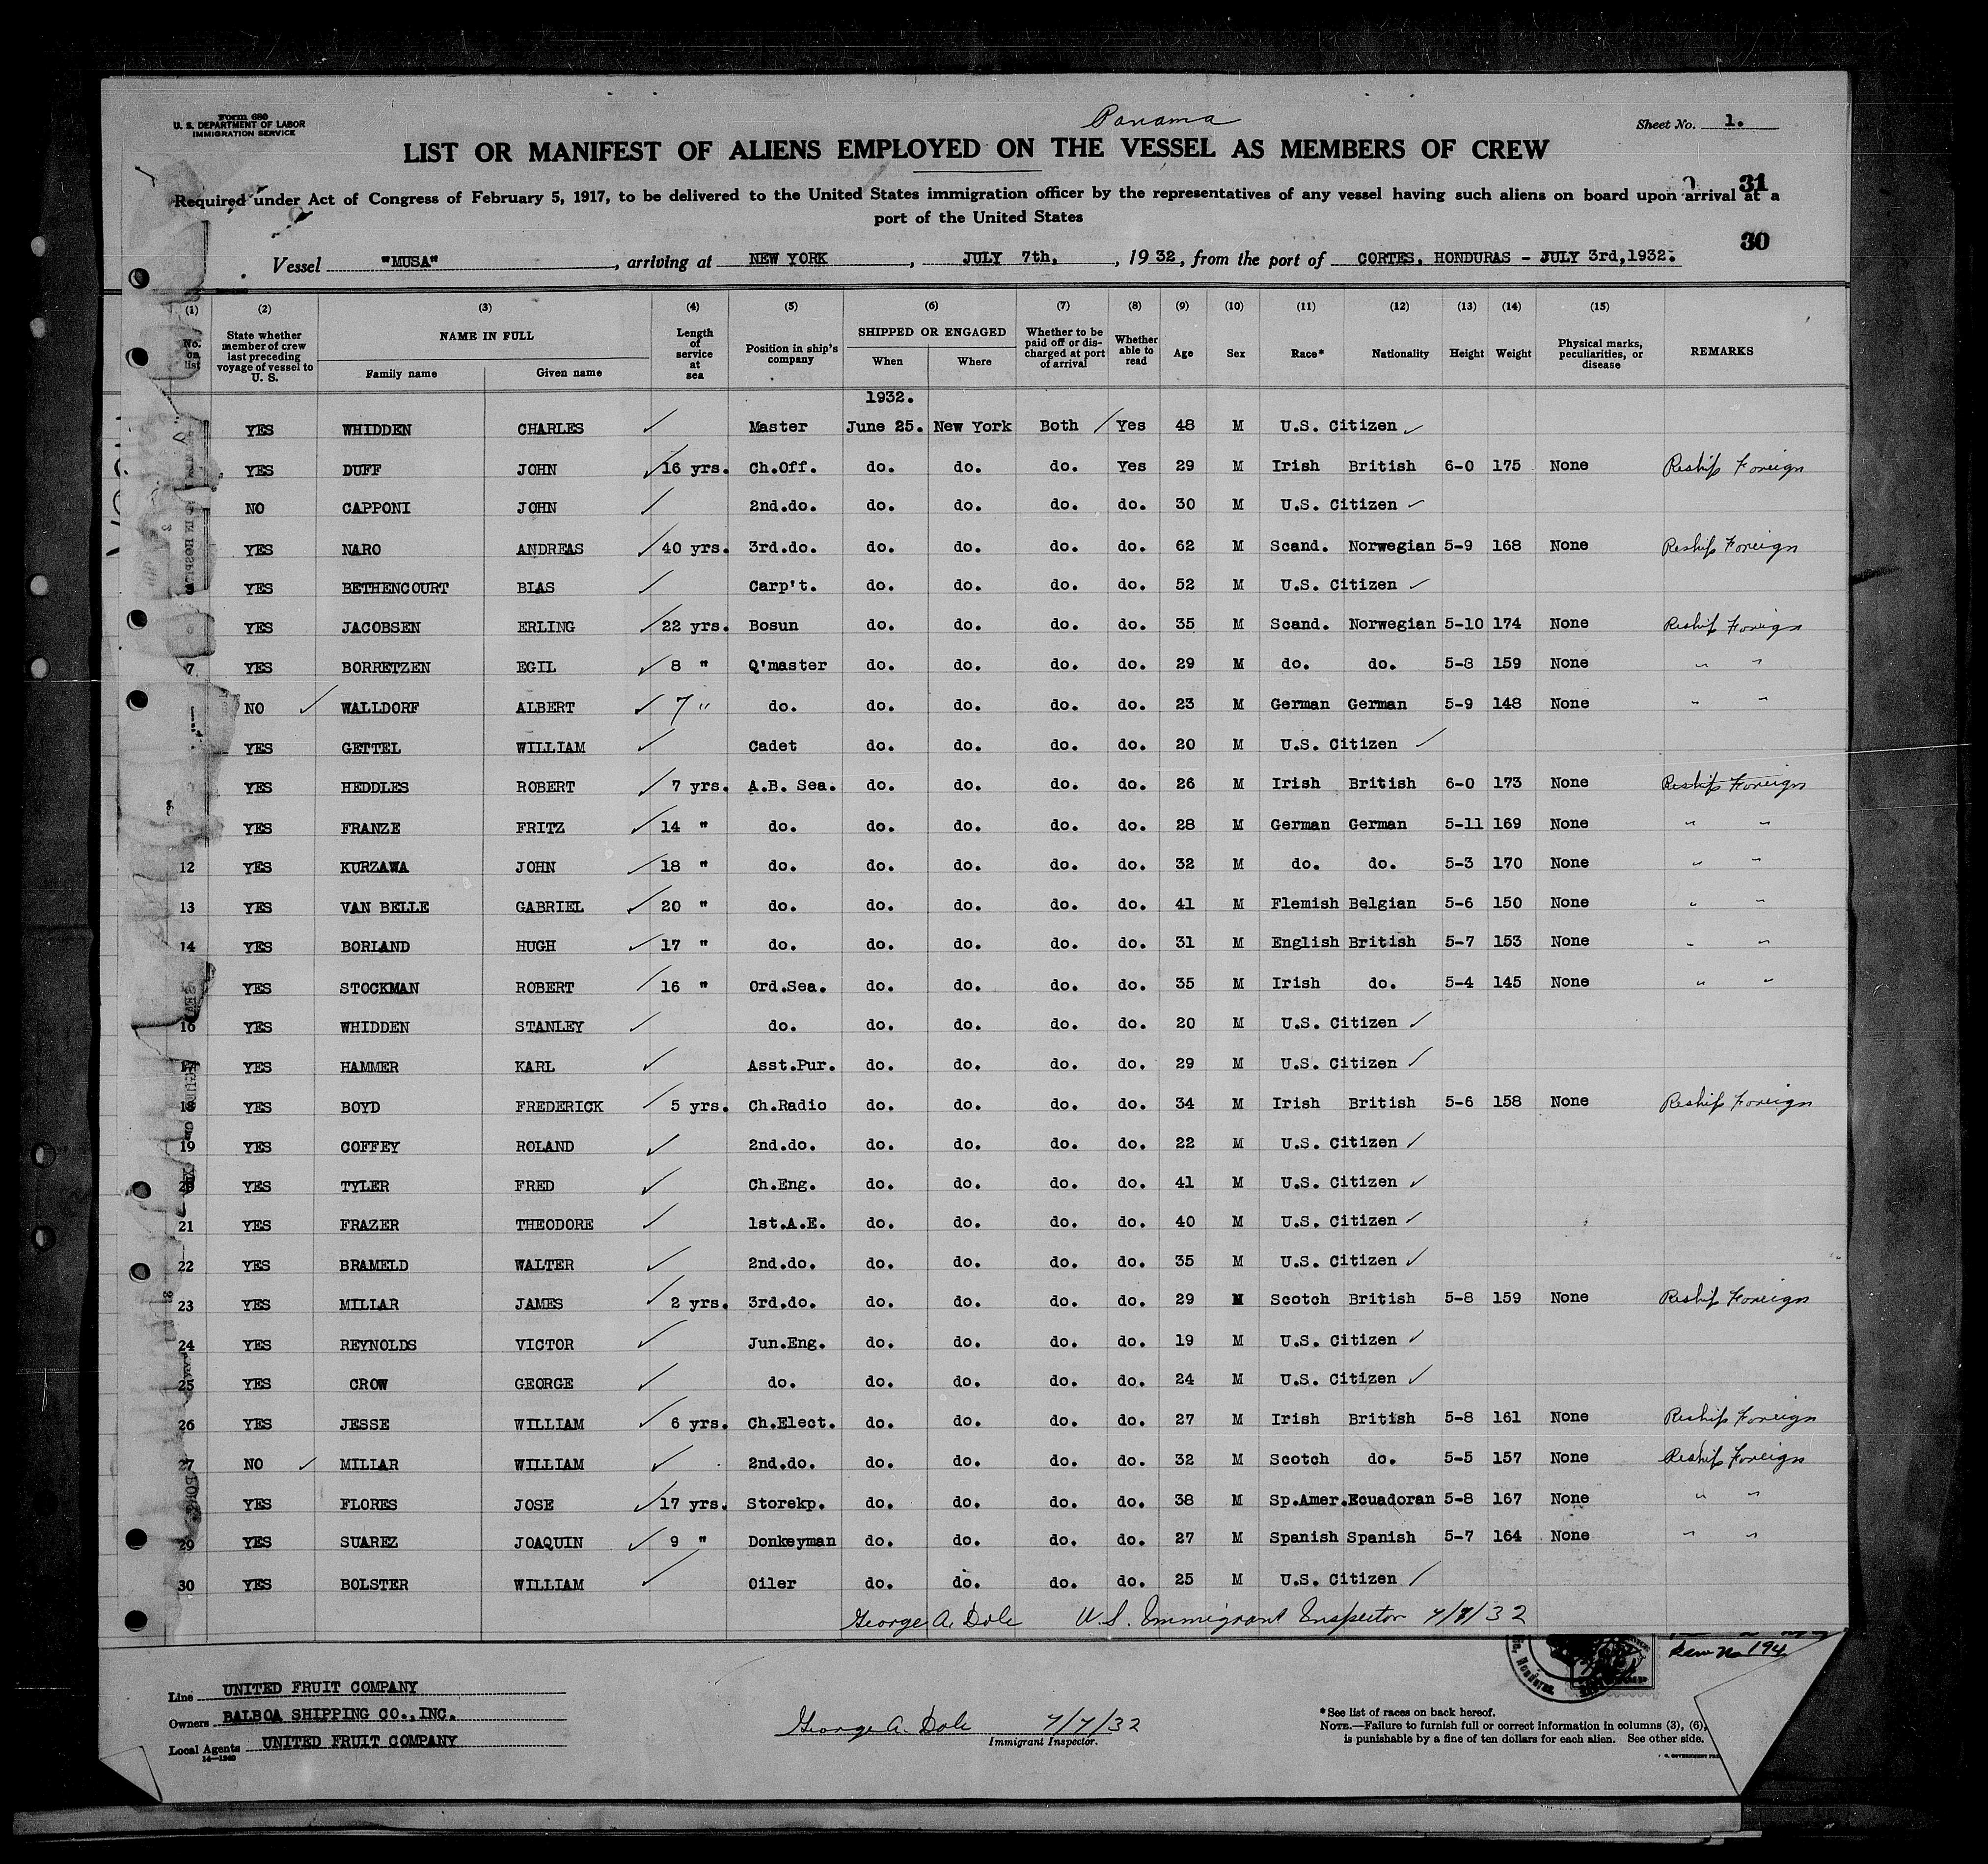 Form 680
U. S. DEPARTMENT OF LABOR
IMMIGRATION SERVICE
Panama
Sheet No. 1.
LIST OR MANIFEST OF ALIENS EMPLOYED ON THE VESSEL AS MEMBERS OF CREW
31
Required under Act of Congress of February 5, 1917, to be delivered to the United States immigration officer by the representatives of any vessel having such aliens on board upon arrival at a
port of the United States
30
Vessel "MUSA", arriving at NEW YORK, JULY 7th, 1932, from the port of CORTES, HONDURAS - JULY 3rd,1932.
(1) (2) (3) (4) (5) (6) (7) (8) (9) (10) (11) (12) (13) (14) (15)
No. on list State whether member of crew last preceding voyage of vessel to U. S. NAME IN FULL Family name Given name Length of service at sea Position in ship's company SHIPPED OR ENGAGED When Where Whether to be paid off or discharged at port of arrival Whether able to read Age Sex Race* Nationality Height Weight Physical marks, peculiarities, or disease REMARKS
1932.
YES WHIDDEN CHARLES ✓ Master June 25. New York Both / Yes 48 M U.S. Citizen ✓
YES DUFF JOHN ✓ 16 yrs. Ch.Off. do. do. do. Yes 29 M Irish British 6-0 175 None Reship Foreign
NO CAPPONI JOHN ✓ 2nd.do. do. do. do. do. 30 M U.S. Citizen ✓
YES NARO ANDREAS ✓ 40 yrs. 3rd.do. do. do. do. do. 62 M Scand. Norwegian 5-9 168 None Reship Foreign
YES BETHENCOURT BLAS ✓ Carp't. do. do. do. do. 52 M U.S. Citizen ✓
YES JACOBSEN ERLING ✓ 22 yrs. Bosun do. do. do. do. 35 M Scand. Norwegian 5-10 174 None Reship Foreign
7 YES BORRETZEN EGIL ✓ 8 " Q'master do. do. do. do. 29 M do. do. 5-8 159 None " "
NO ✓ WALLDORF ALBERT ✓ 7 " do. do. do. do. do. 23 M German German 5-9 148 None " "
YES GETTEL WILLIAM ✓ Cadet do. do. do. do. 20 M U.S. Citizen ✓
YES HEDDLES ROBERT ✓ 7 yrs. A.B. Sea. do. do. do. do. 26 M Irish British 6-0 173 None Reship Foreign
YES FRANZE FRITZ ✓ 14 " do. do. do. do. do. 28 M German German 5-11 169 None " "
12 YES KURZAWA JOHN ✓ 18 " do. do. do. do. do. 32 M do. do. 5-3 170 None " "
13 YES VAN BELLE GABRIEL ✓ 20 " do. do. do. do. do. 41 M Flemish Belgian 5-6 150 None " "
14 YES BORLAND HUGH ✓ 17 " do. do. do. do. do. 31 M English British 5-7 153 None " "
YES STOCKMAN ROBERT ✓ 16 " Ord.Sea. do. do. do. do. 35 M Irish do. 5-4 145 None " "
16 YES WHIDDEN STANLEY ✓ do. do. do. do. do. 20 M U.S. Citizen ✓
17 YES HAMMER KARL ✓ Asst.Pur. do. do. do. do. 29 M U.S. Citizen ✓
18 YES BOYD FREDERICK ✓ 5 yrs. Ch.Radio do. do. do. do. 34 M Irish British 5-6 158 None Reship Foreign
19 YES COFFEY ROLAND ✓ 2nd.do. do. do. do. do. 22 M U.S. Citizen ✓
20 YES TYLER FRED ✓ Ch.Eng. do. do. do. do. 41 M U.S. Citizen ✓
21 YES FRAZER THEODORE ✓ 1st.A.E. do. do. do. do. 40 M U.S. Citizen ✓
22 YES BRAMELD WALTER ✓ 2nd.do. do. do. do. do. 35 M U.S. Citizen ✓
23 YES MILLAR JAMES ✓ 2 yrs. 3rd.do. do. do. do. do. 29 M Scotch British 5-8 159 None Reship Foreign
24 YES REYNOLDS VICTOR ✓ Jun.Eng. do. do. do. do. 19 M U.S. Citizen ✓
25 YES CROW GEORGE ✓ do. do. do. do. do. 24 M U.S. Citizen ✓
26 YES JESSE WILLIAM ✓ 6 yrs. Ch.Elect. do. do. do. do. 27 M Irish British 5-8 161 None Reship Foreign
27 NO ✓ MILLAR WILLIAM ✓ 2nd.do. do. do. do. do. 32 M Scotch do. 5-5 157 None Reship Foreign
YES FLORES JOSE ✓ 17 yrs. Storekp. do. do. do. do. 38 M Sp.Amer. Ecuadoran 5-8 167 None " "
29 YES SUAREZ JOAQUIN ✓ 9 " Donkeyman do. do. do. do. 27 M Spanish Spanish 5-7 164 None " "
30 YES BOLSTER WILLIAM ✓ Oiler do. do. do. do. 25 M U.S. Citizen ✓
George A. Dole U.S. Immigrant Inspector 7/7/32
194
Line UNITED FRUIT COMPANY
Owners BALBOA SHIPPING CO.,INC.
Local Agents UNITED FRUIT COMPANY
14—1240
George A. Dole 7/7/32
Immigrant Inspector.
*See list of races on back hereof.
NOTE.—Failure to furnish full or correct information in columns (3), (6),
is punishable by a fine of ten dollars for each alien. See other side.